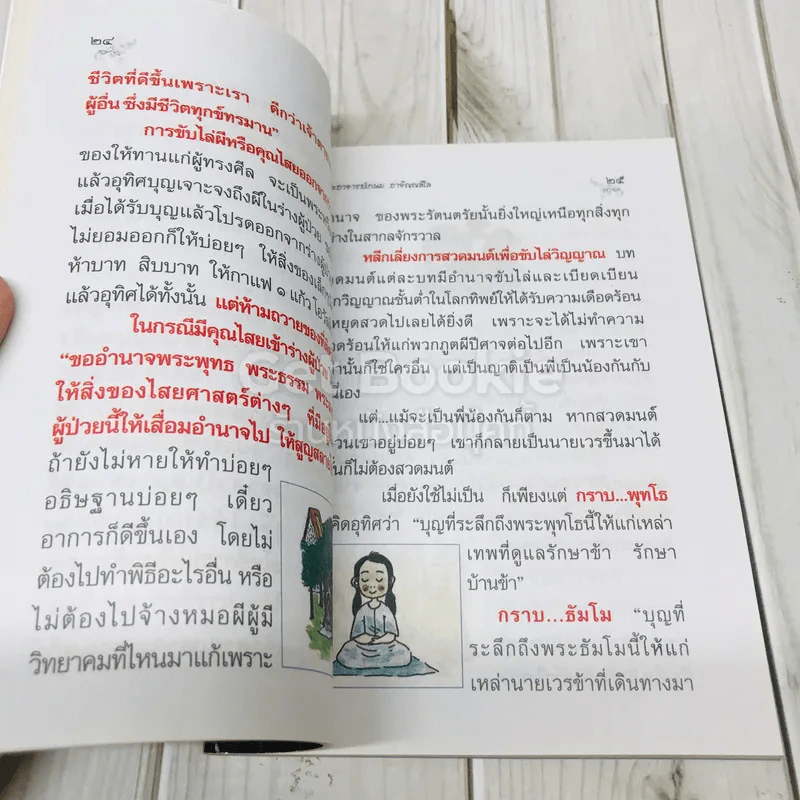 ๒๔
ชีวิตที่ดีขึ้นเพราะเรา ดีกว่าเจ้า
ผู้อื่น ซึ่งมีชีวิตทุกข์ทรมาน”
การขับไล่ผีหรือคุณไสยออก
ของให้ทานแก่ผู้ทรงศีล จะเป็นพระ
แล้วอุทิศบุญเจาะจงถึงผีในร่างผู้ป่วย
เมื่อได้รับบุญแล้วโปรดออกจากร่างผู้
ไม่ยอมออกก็ให้บ่อยๆ ให้สิ่งของเล็ก
ห้าบาท สิบบาท ให้กาแฟ ๑ แก้ว
แล้วอุทิศได้ทั้งนั้น แต่ห้ามถวายของ
ในกรณีมีคุณไสยเข้าร่างผู้ป่วย
“ขออำนาจพระพุทธ พระธรรม
ให้สิ่งของไสยศาสตร์ต่างๆ ที่
ผู้ป่วยนี้ให้เสื่อมอำนาจไป ให้สูญ
ถ้ายังไม่หายให้ทำบ่อยๆ
อธิษฐานบ่อยๆ เดี๋ยว
อาการก็ดีขึ้นเอง โดยไม่
ต้องไปทำพิธีอะไรอื่น หรือ
ไม่ต้องไปจ้างหมอผีผู้มี
วิทยาคมที่ไหนมาแก้เพราะ
๒๕
อำนาจ ของพระรัตนตรัยนั้นยิ่งใหญ่เหนือทุกสิ่งทุก
ในสากลจักรวาล
หลีกเลี่ยงการสวดมนต์เพื่อขับไล่วิญญาณ บท
สวดมนต์แต่ละบทมีอำนาจขับไล่และเบียดเบียน
วิญญาณชั้นต่ำในโลกทิพย์ให้ได้รับความเดือดร้อน
หยุดสวดไปเลยได้ยิ่งดี เพราะจะได้ไม่ทำความ
เดือดร้อนให้แก่พวกภูตผีปีศาจต่อไปอีก เพราะเขา
นั้นก็ใช่ใครอื่น แต่เป็นญาติเป็นพี่เป็นน้องกันกับ
แต่...แม้จะเป็นพี่น้องกันก็ตาม หากสวดมนต์
เขาอยู่บ่อยๆ เขาก็กลายเป็นนายเวรขึ้นมาได้
ก็ไม่ต้องสวดมนต์
เมื่อยังใช้ไม่เป็น ก็เพียงแต่ กราบ...พุทโธ
คิดอุทิศว่า “บุญที่ระลึกถึงพระพุทโธนี้ให้แก่เหล่า
เทพที่ดูแลรักษาข้า รักษา
บ้านข้า”
กราบ...ธัมโม “บุญที่
ระลึกถึงพระธัมโมนี้ให้แก่
เหล่านายเวรข้าที่เดินทางมา
Get Bookie